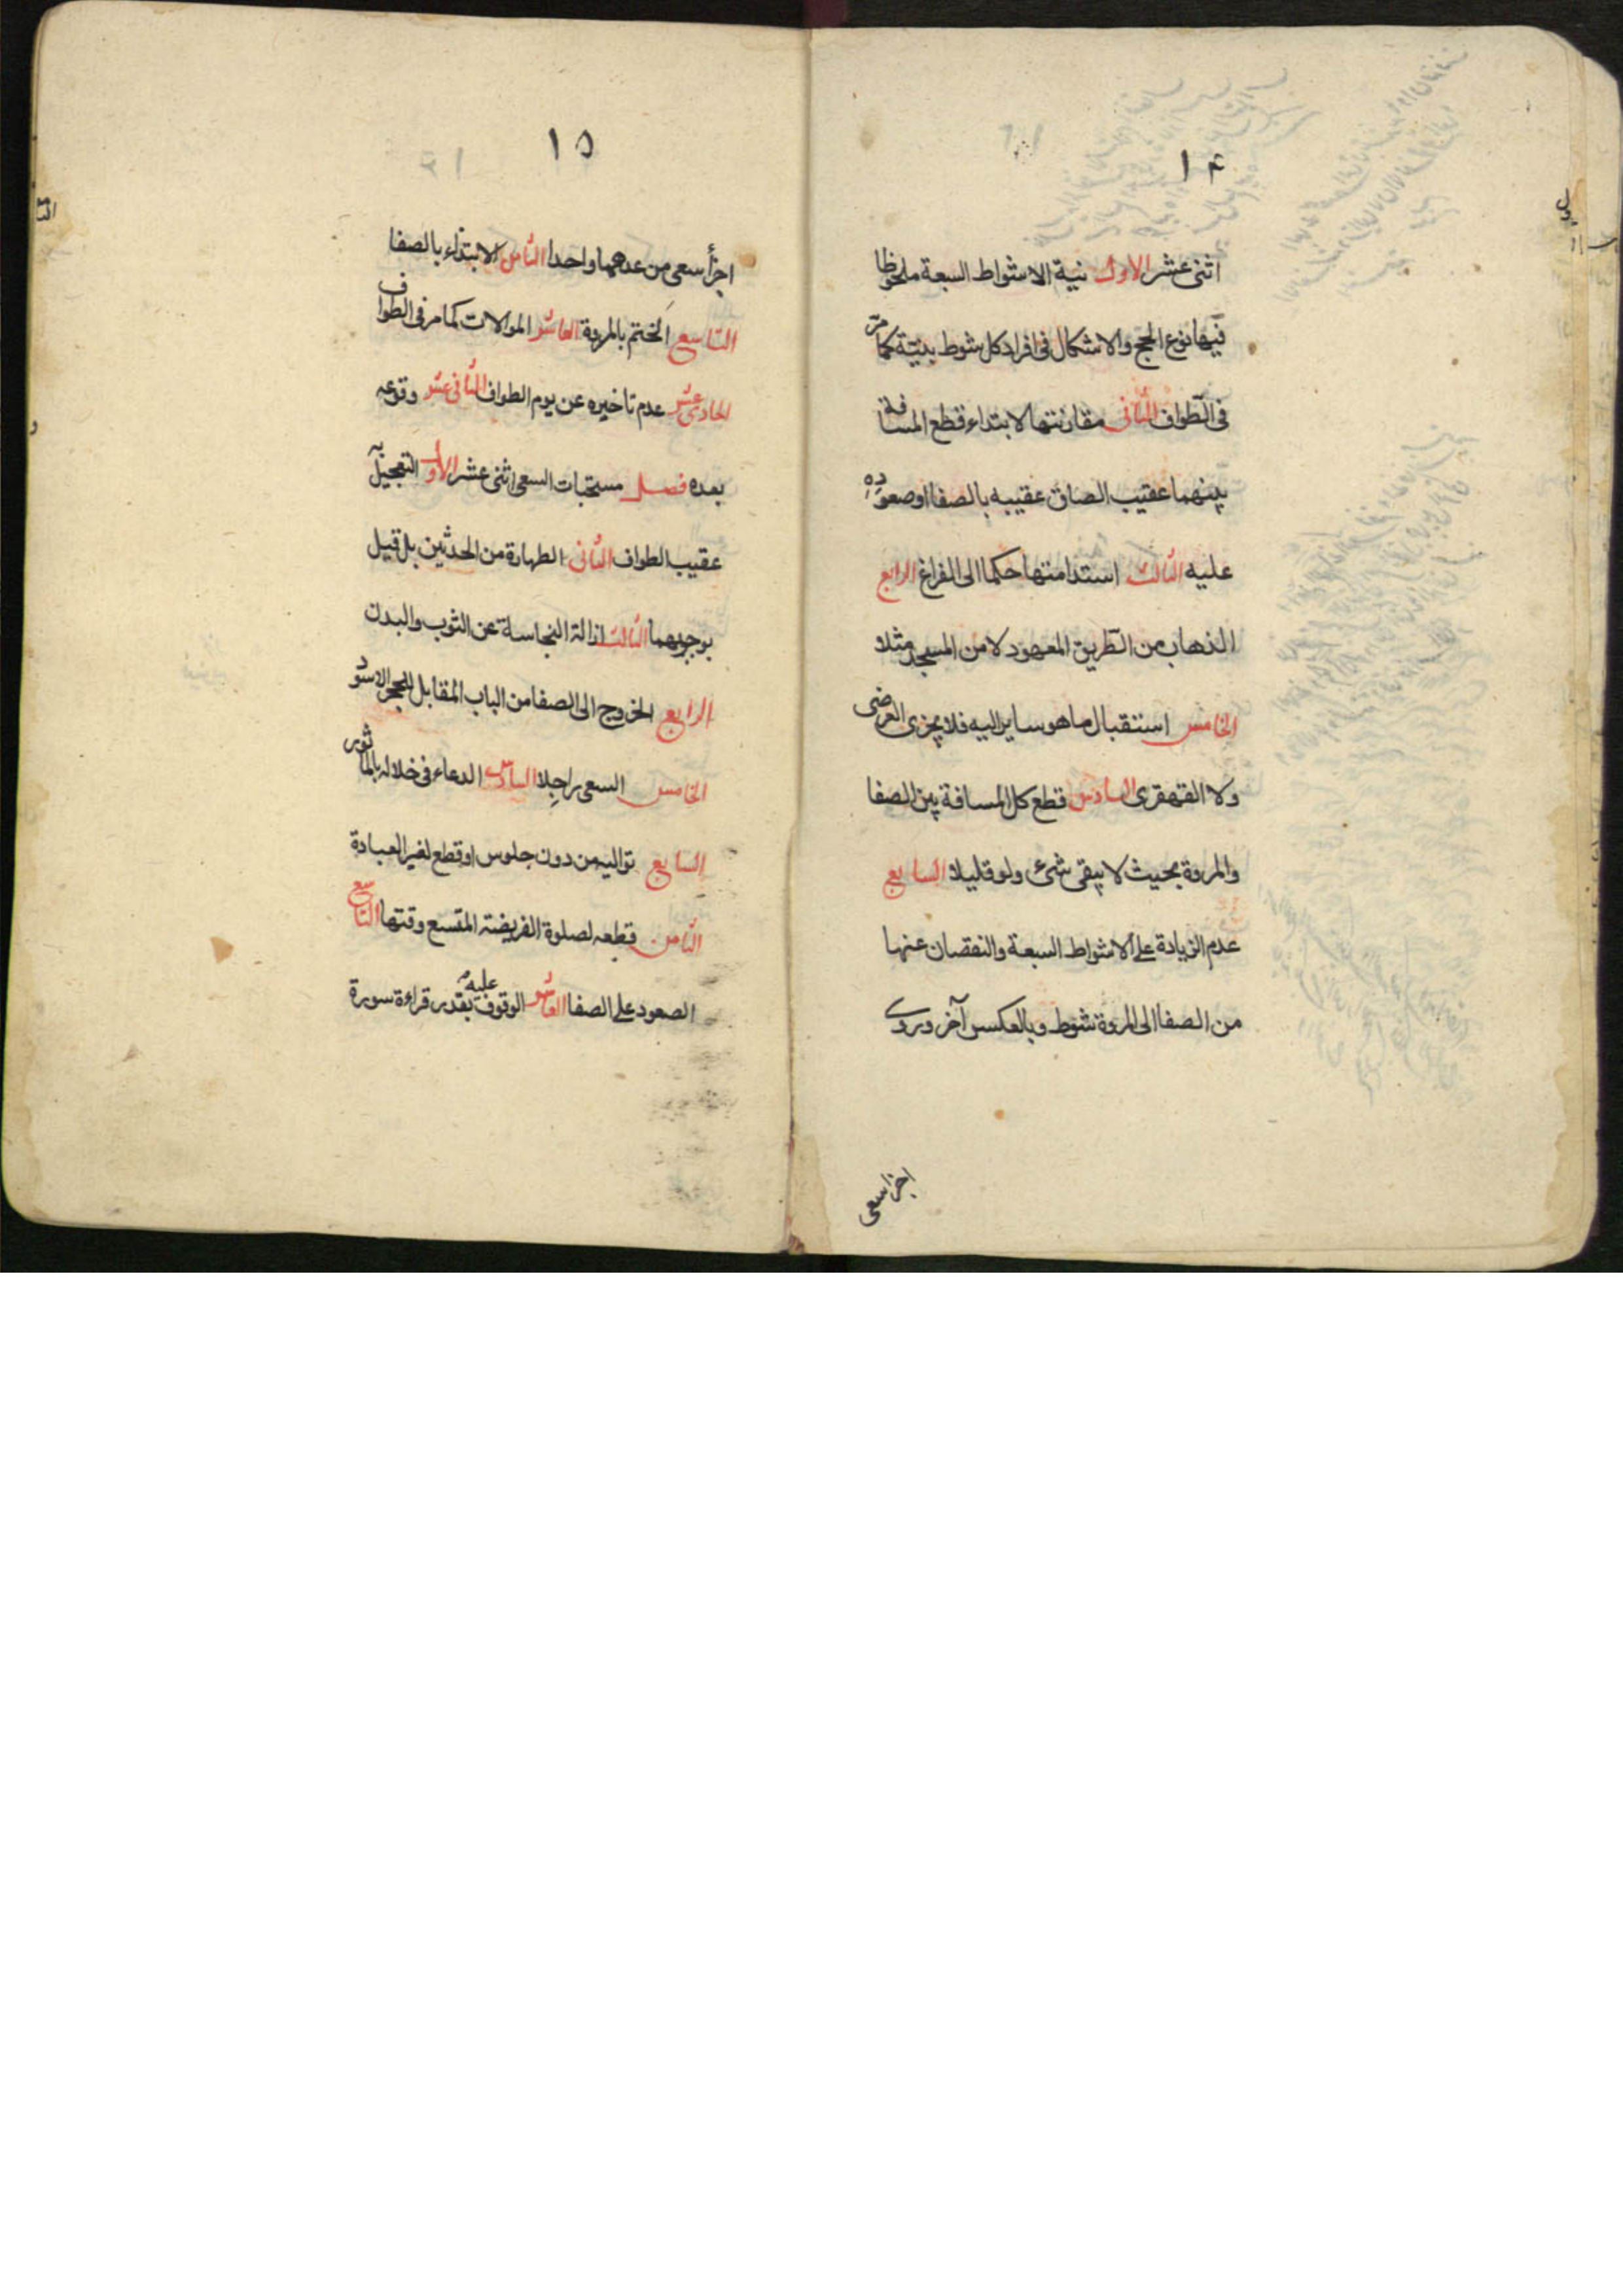 ١۴
اثنى عشر الاول نية الاشواط السبعة ملحوظا
فيها نوع الحج والاشكال فى افراد كل شوط بنيّة كما مرّ
فى الطواف الثانى مقارنتها لابتداء قطع المسافة
بينهما عقيب الصاق عقيبه بالصفا او صعوده
عليه الثالث استدامتها حكما الى الفراغ الرابع
الذهاب من الطريق المعهود لا من المسجد مثلا
الخامس استقبال ما هو ساير اليه فلا يجزى العرضى
ولا القهقرى السادس قطع كل المسافة بين الصفا
والمروة بحيث لا يبقى شئ ولو قليلا السابع
عدم الزيادة على الاشواط السبعة والنقصان عنها
من الصفا الى المروة شوط وبالعكس آخر وروى
اجزا سعى
١۵
اجزأ سعى من عدهما واحدا الثامن الابتداء بالصفا
التاسع الختم بالمروة العاشر الموالات كما مر فى الطواف
الحادى عشر عدم تاخيره عن يوم الطواف الثانى عشر وقوعه
بعده فصل مستحبات السعى اثنى عشر الأول التعجيل به
عقيب الطواف الثانى الطهارة من الحدثين بل قيل
بوجوبهما الثالث ازالة النجاسة عن الثوب والبدن
الرابع الخروج الى الصفا من الباب المقابل للحجر الاسود
الخامس السعى راجلا السادس الدعاء فى خلاله بالماثور
السابع تواليه من دون جلوس او قطع لغير العبادة
الثامن قطعه لصلوة الفريضة المتسع وقتها التاسع
الصعود على الصفا العاشر الوقوف عليه بقدر قراءة سورة